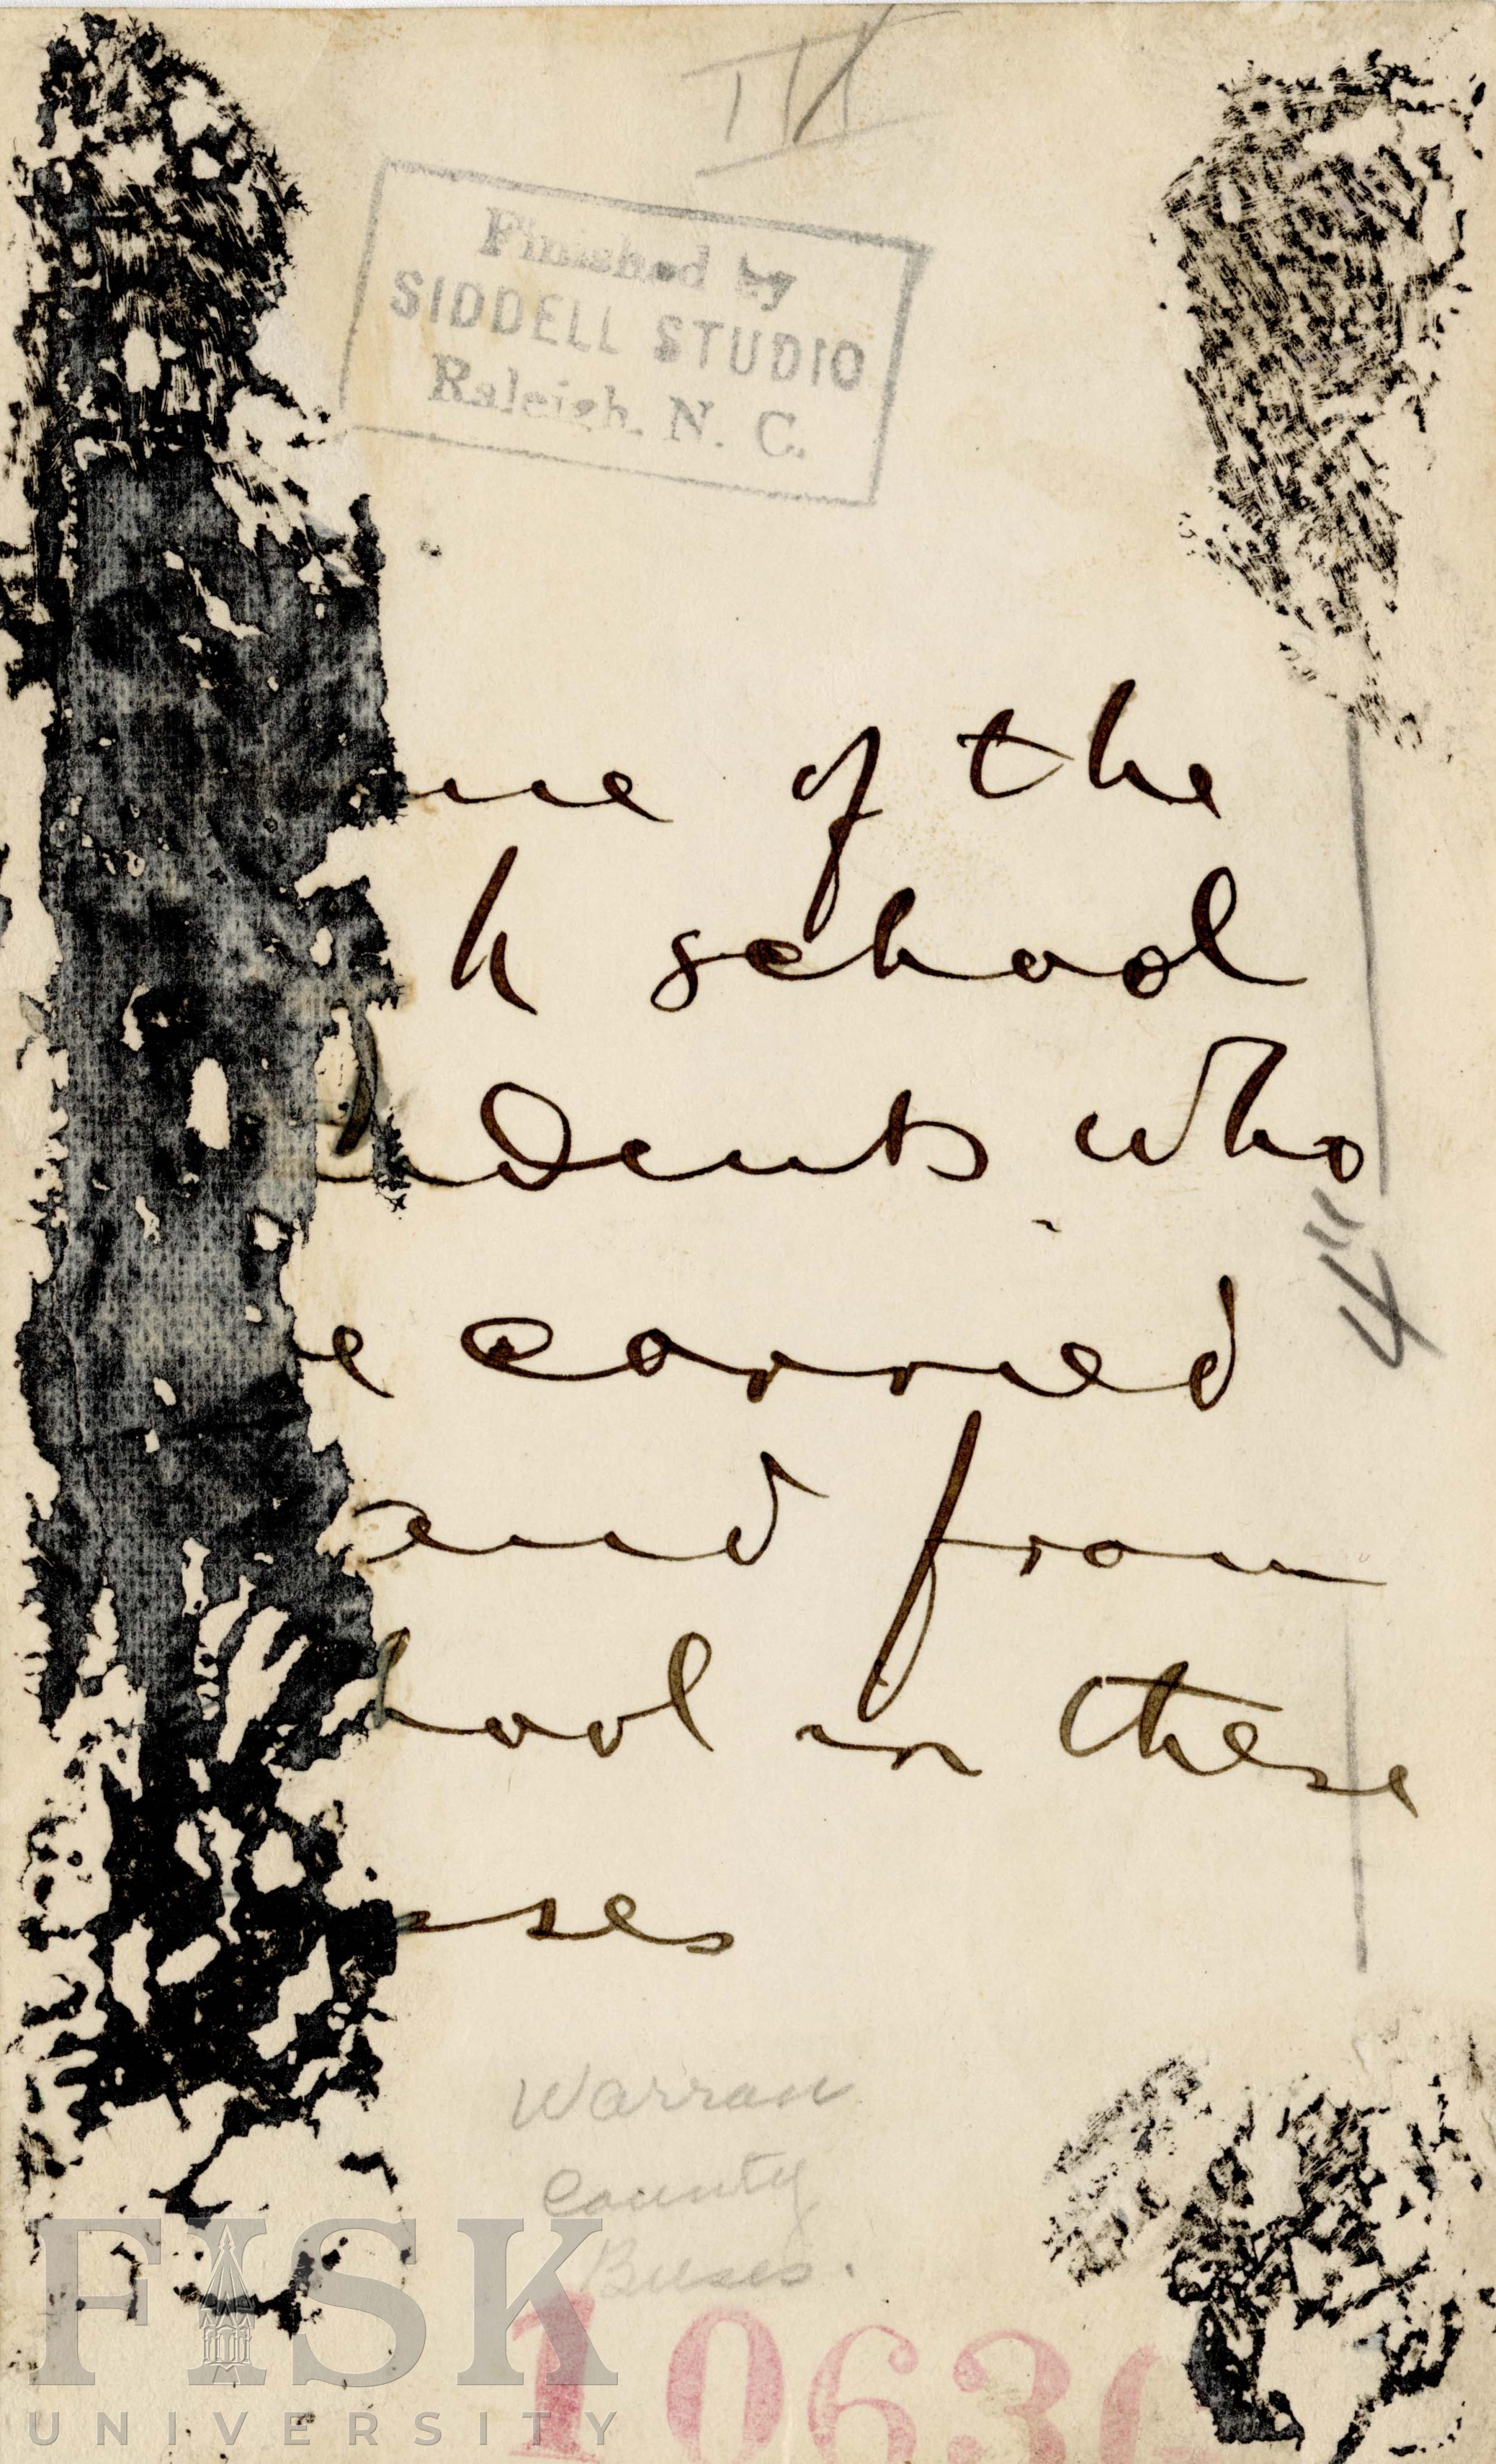 III
Finished by
SIDDELL STUDIO
Raleigh, N. C.
me of the
h school
udents who
e carried
and from
hool in these
4"
sses
Warran
County
Buses.
1063
FISK
UNIVERSITY